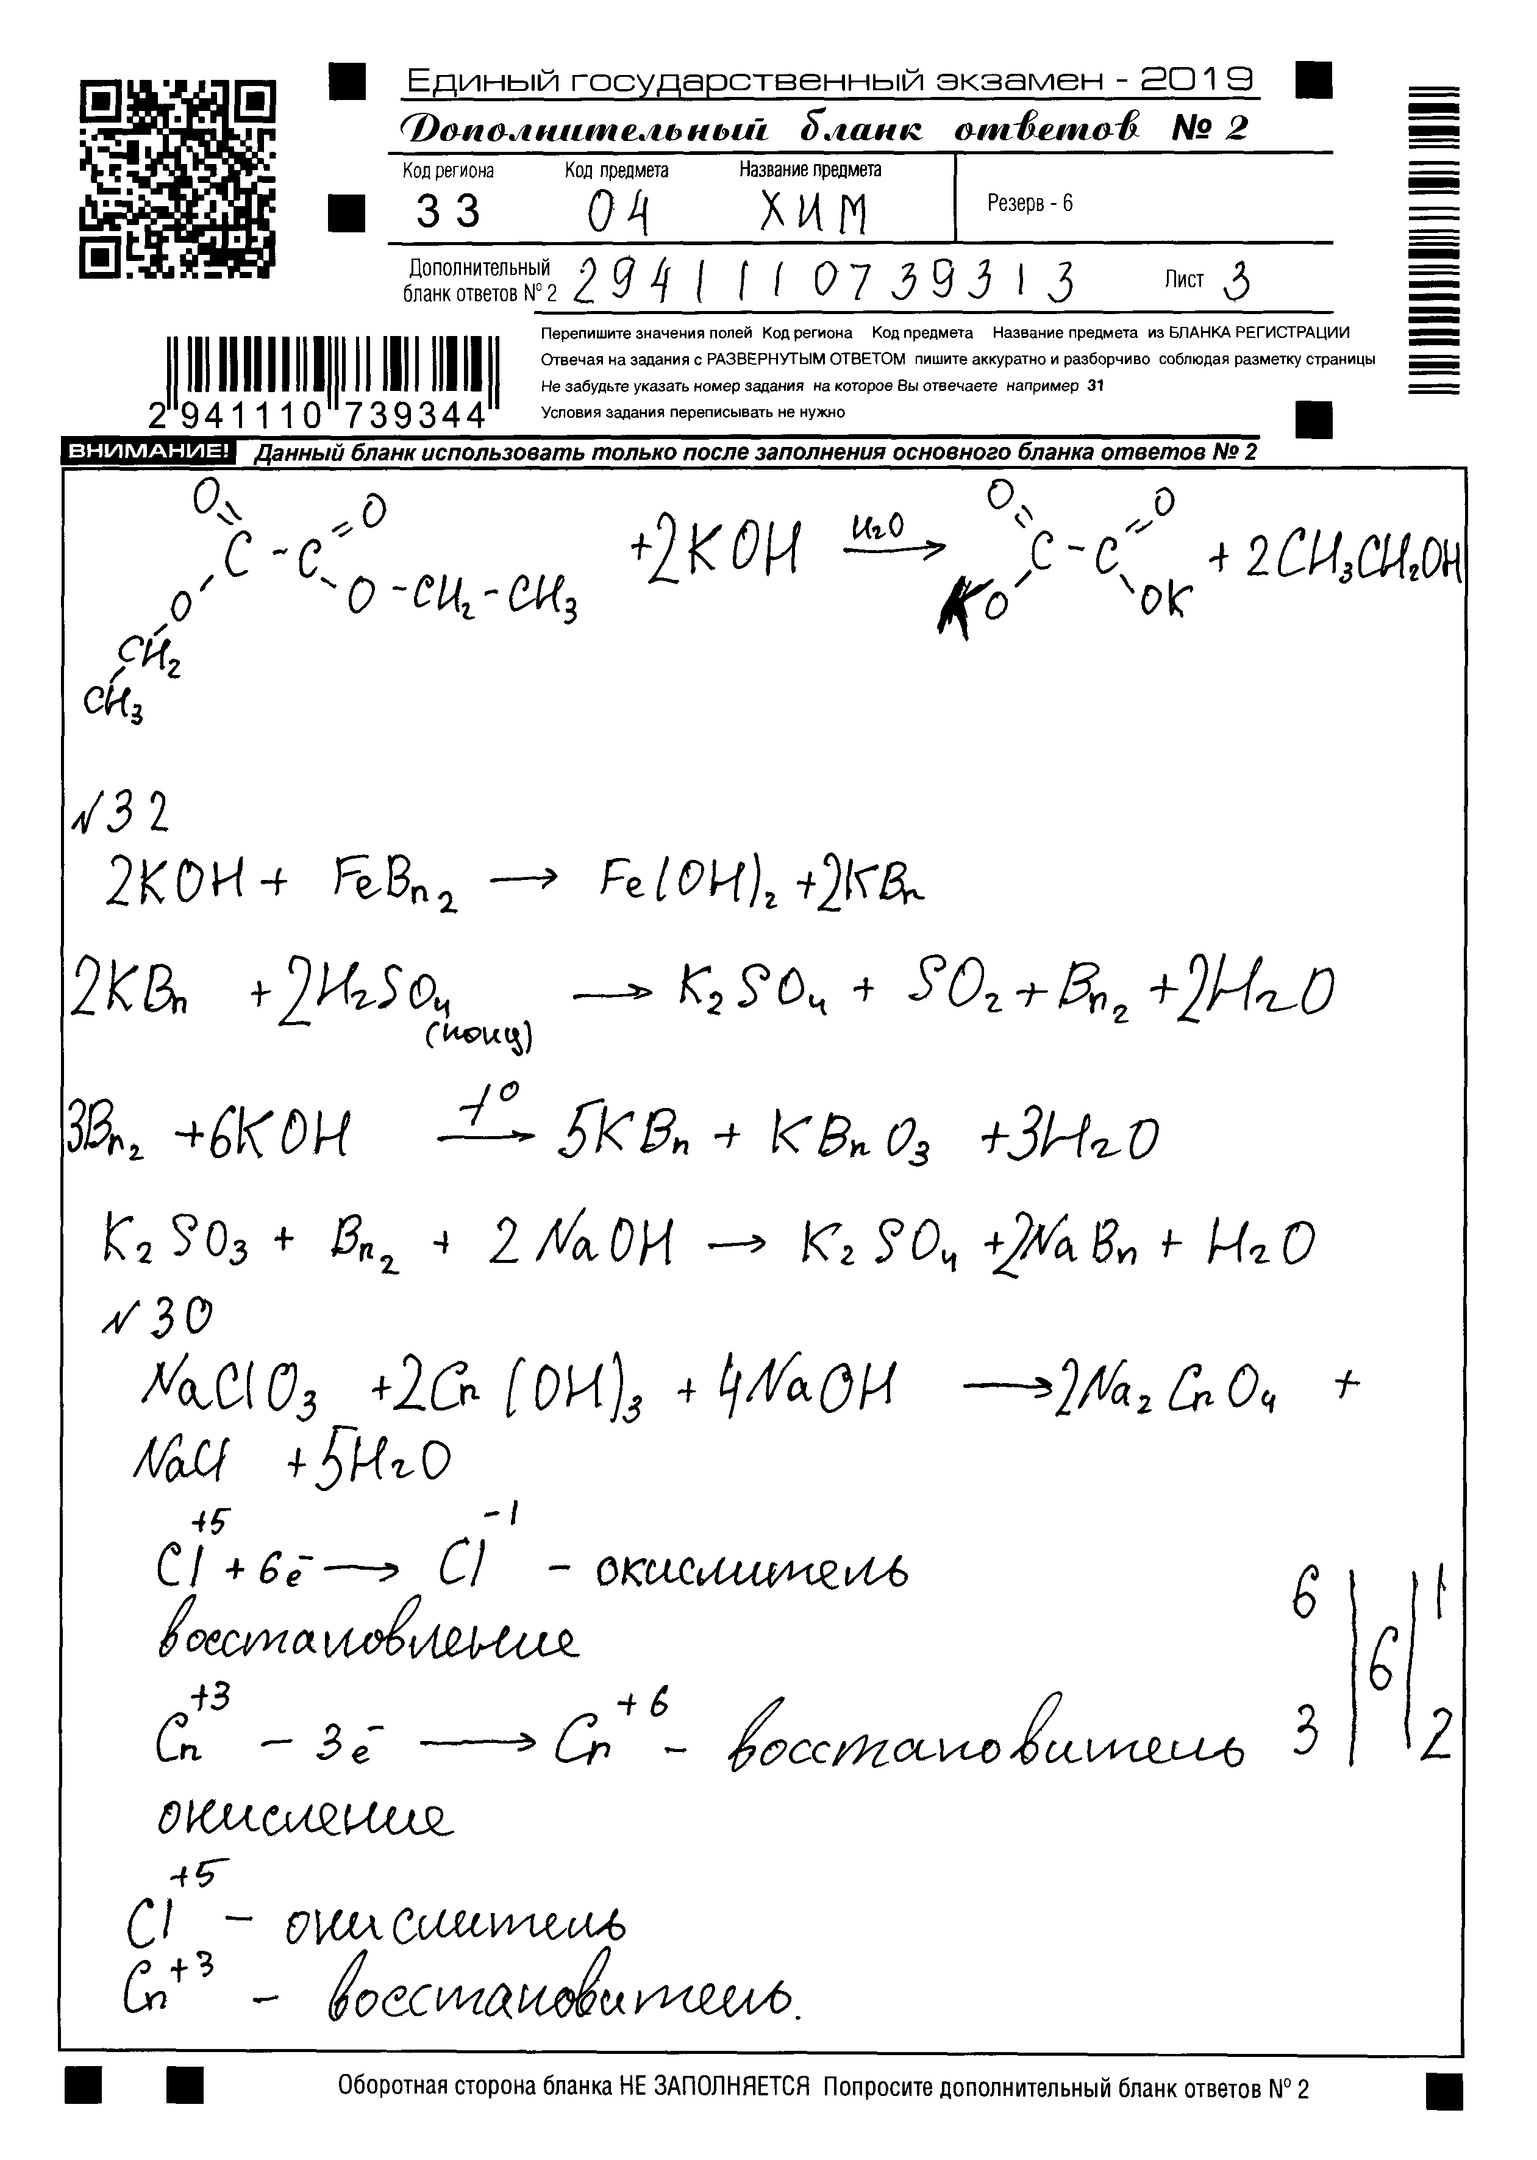 Единый государственный экзамен - 2019
Дополнительный бланк ответов № 2
Код региона Код предмета Название предмета
33 04 ХИМ Резерв - 6
Дополнительный бланк ответов № 2 2941110739313 Лист 3
Перепишите значения полей Код региона Код предмета Название предмета из БЛАНКА РЕГИСТРАЦИИ
Отвечая на задания с РАЗВЕРНУТЫМ ОТВЕТОМ пишите аккуратно и разборчиво соблюдая разметку страницы
Не забудьте указать номер задания на которое Вы отвечаете например 31
Условия задания переписывать не нужно
2941110739344
ВНИМАНИЕ! Данный бланк использовать только после заполнения основного бланка ответов № 2
O O H₂O O O
C - C +2KOH → C - C + 2CH₃CH₂OH
O O - CH₂ - CH₃ KO OK
CH₂
CH₃
№32
2KOH + FeBr₂ → Fe(OH)₂ +2KBr
2KBr +2H₂SO₄ (конц) → K₂SO₄ + SO₂ + Br₂ +2H₂O
3Br₂ +6KOH t° → 5KBr + KBrO₃ +3H₂O
K₂SO₃ + Br₂ + 2NaOH → K₂SO₄ +2NaBr + H₂O
№30
NaClO₃ +2Cr(OH)₃ + 4NaOH → 2Na₂CrO₄ +
NaCl +5H₂O
Cl⁺⁵ + 6e⁻ → Cl⁻¹ - окислитель 6 | | 1
восстановление 6
Cr⁺³ - 3e⁻ → Cr⁺⁶ - восстановитель 3 | | 2
окисление
Cl⁺⁵ - окислитель
Cr⁺³ - восстановитель.
Оборотная сторона бланка НЕ ЗАПОЛНЯЕТСЯ Попросите дополнительный бланк ответов № 2